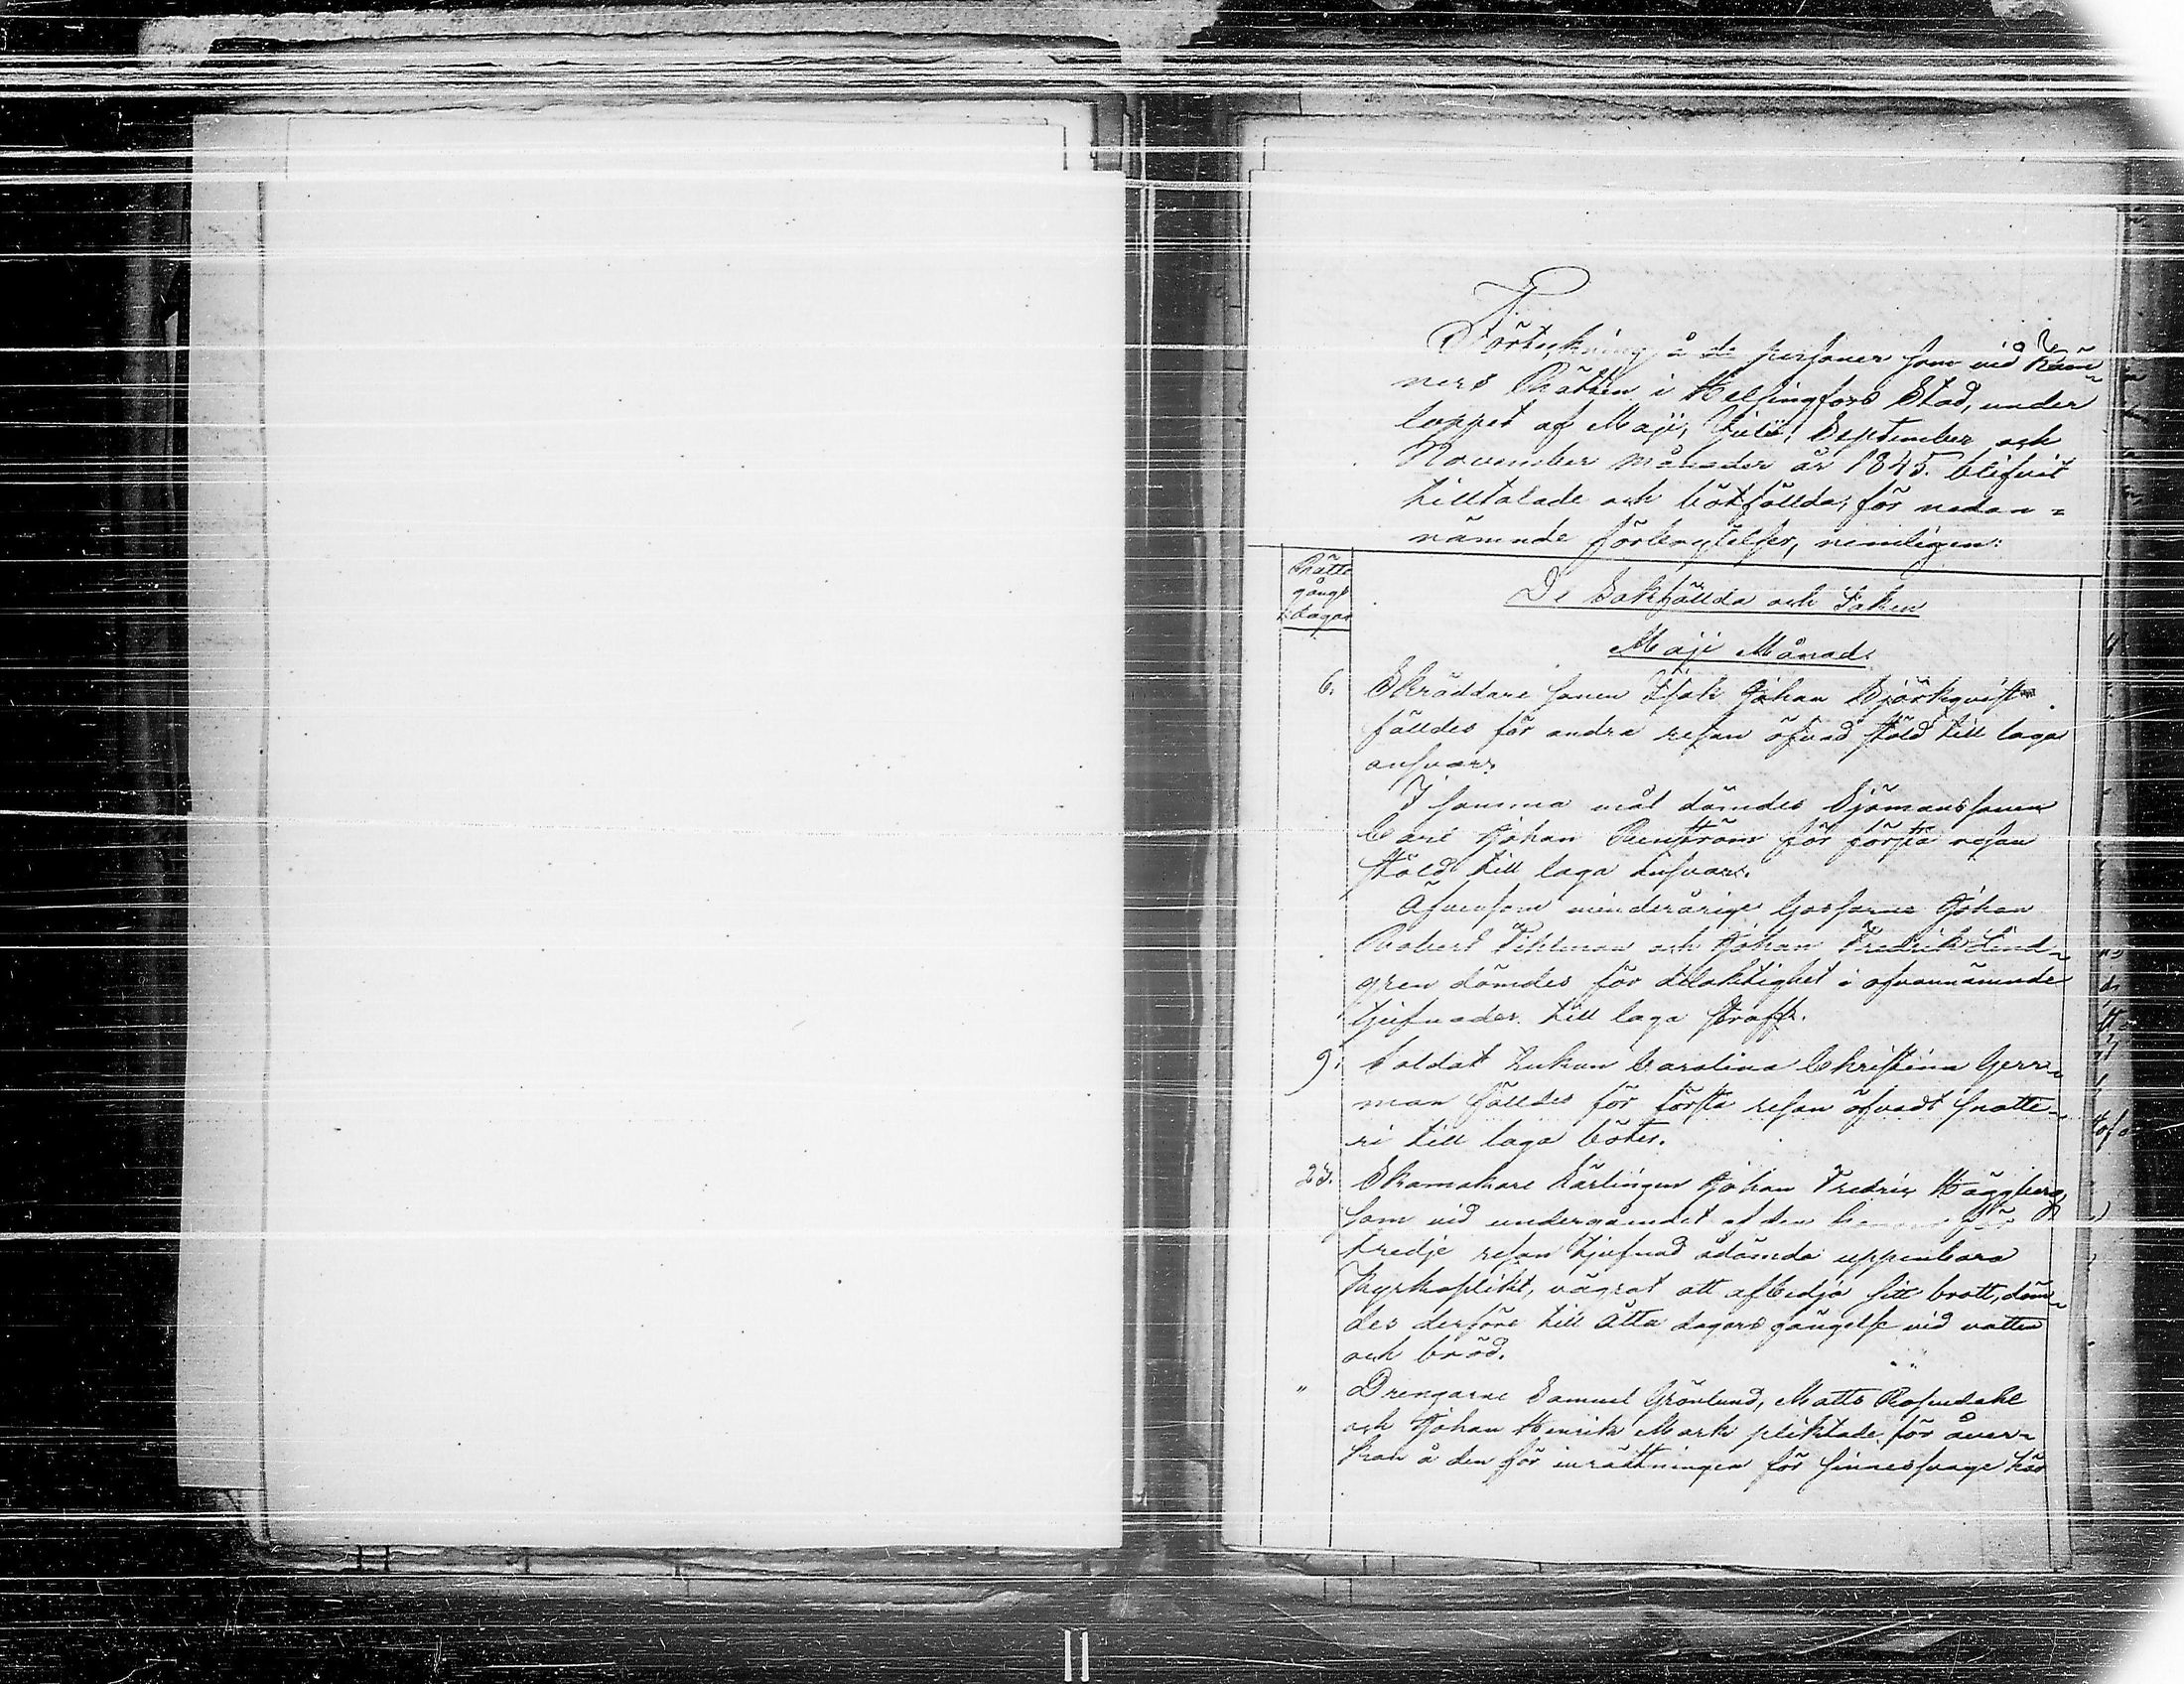 Förteckning å de personer som vid Käm-
ners Rätten i Helsingfors Stad, under
loppet af Maji, Julii, September och
November månader år 1845. blifvit
tilltalade och botfällda, för nedan=
nämnde förbrytelser, nemligen:
Rätte
gångs
dagar
De Sakfällda och Saken
Maji Månad.
6. Skräddare sonen Isak Johan Björkqvist
fälldes för andra resan öfvad stöld till laga
ansvar.
I samma mål dömdes Sjömanssonen
Carl Johan Renström för första resan
stöld till laga ansvar.
Äfvensom minderårige Gossarne Johan
Robert Fihlman och Johan Fredrik Lind-
gren dömdes för delaktighet i ofvannämnde
tjufnader till laga straff.
9. Soldat Enkan Carolina Christina Gerr-
man fälldes för första resan öfvadt snatte-
ri till laga böter.
23. Skomakare Lärlingen Johan Fredrix Häggberg
som vid undergåendet af den honom för
tredje resan tjufnad ådömda uppenbara
Kyrkoplikt, vägrat att afbedja sitt brott, döm-
des derföre till åtta dagars fängelse vid vatten
och bröd.
" Drengarne Samuel Grönlund, Matts Rosendahl
och Johan Henrik Mark pliktade för åver-
kan å den för inrättningen för sinnessvage här